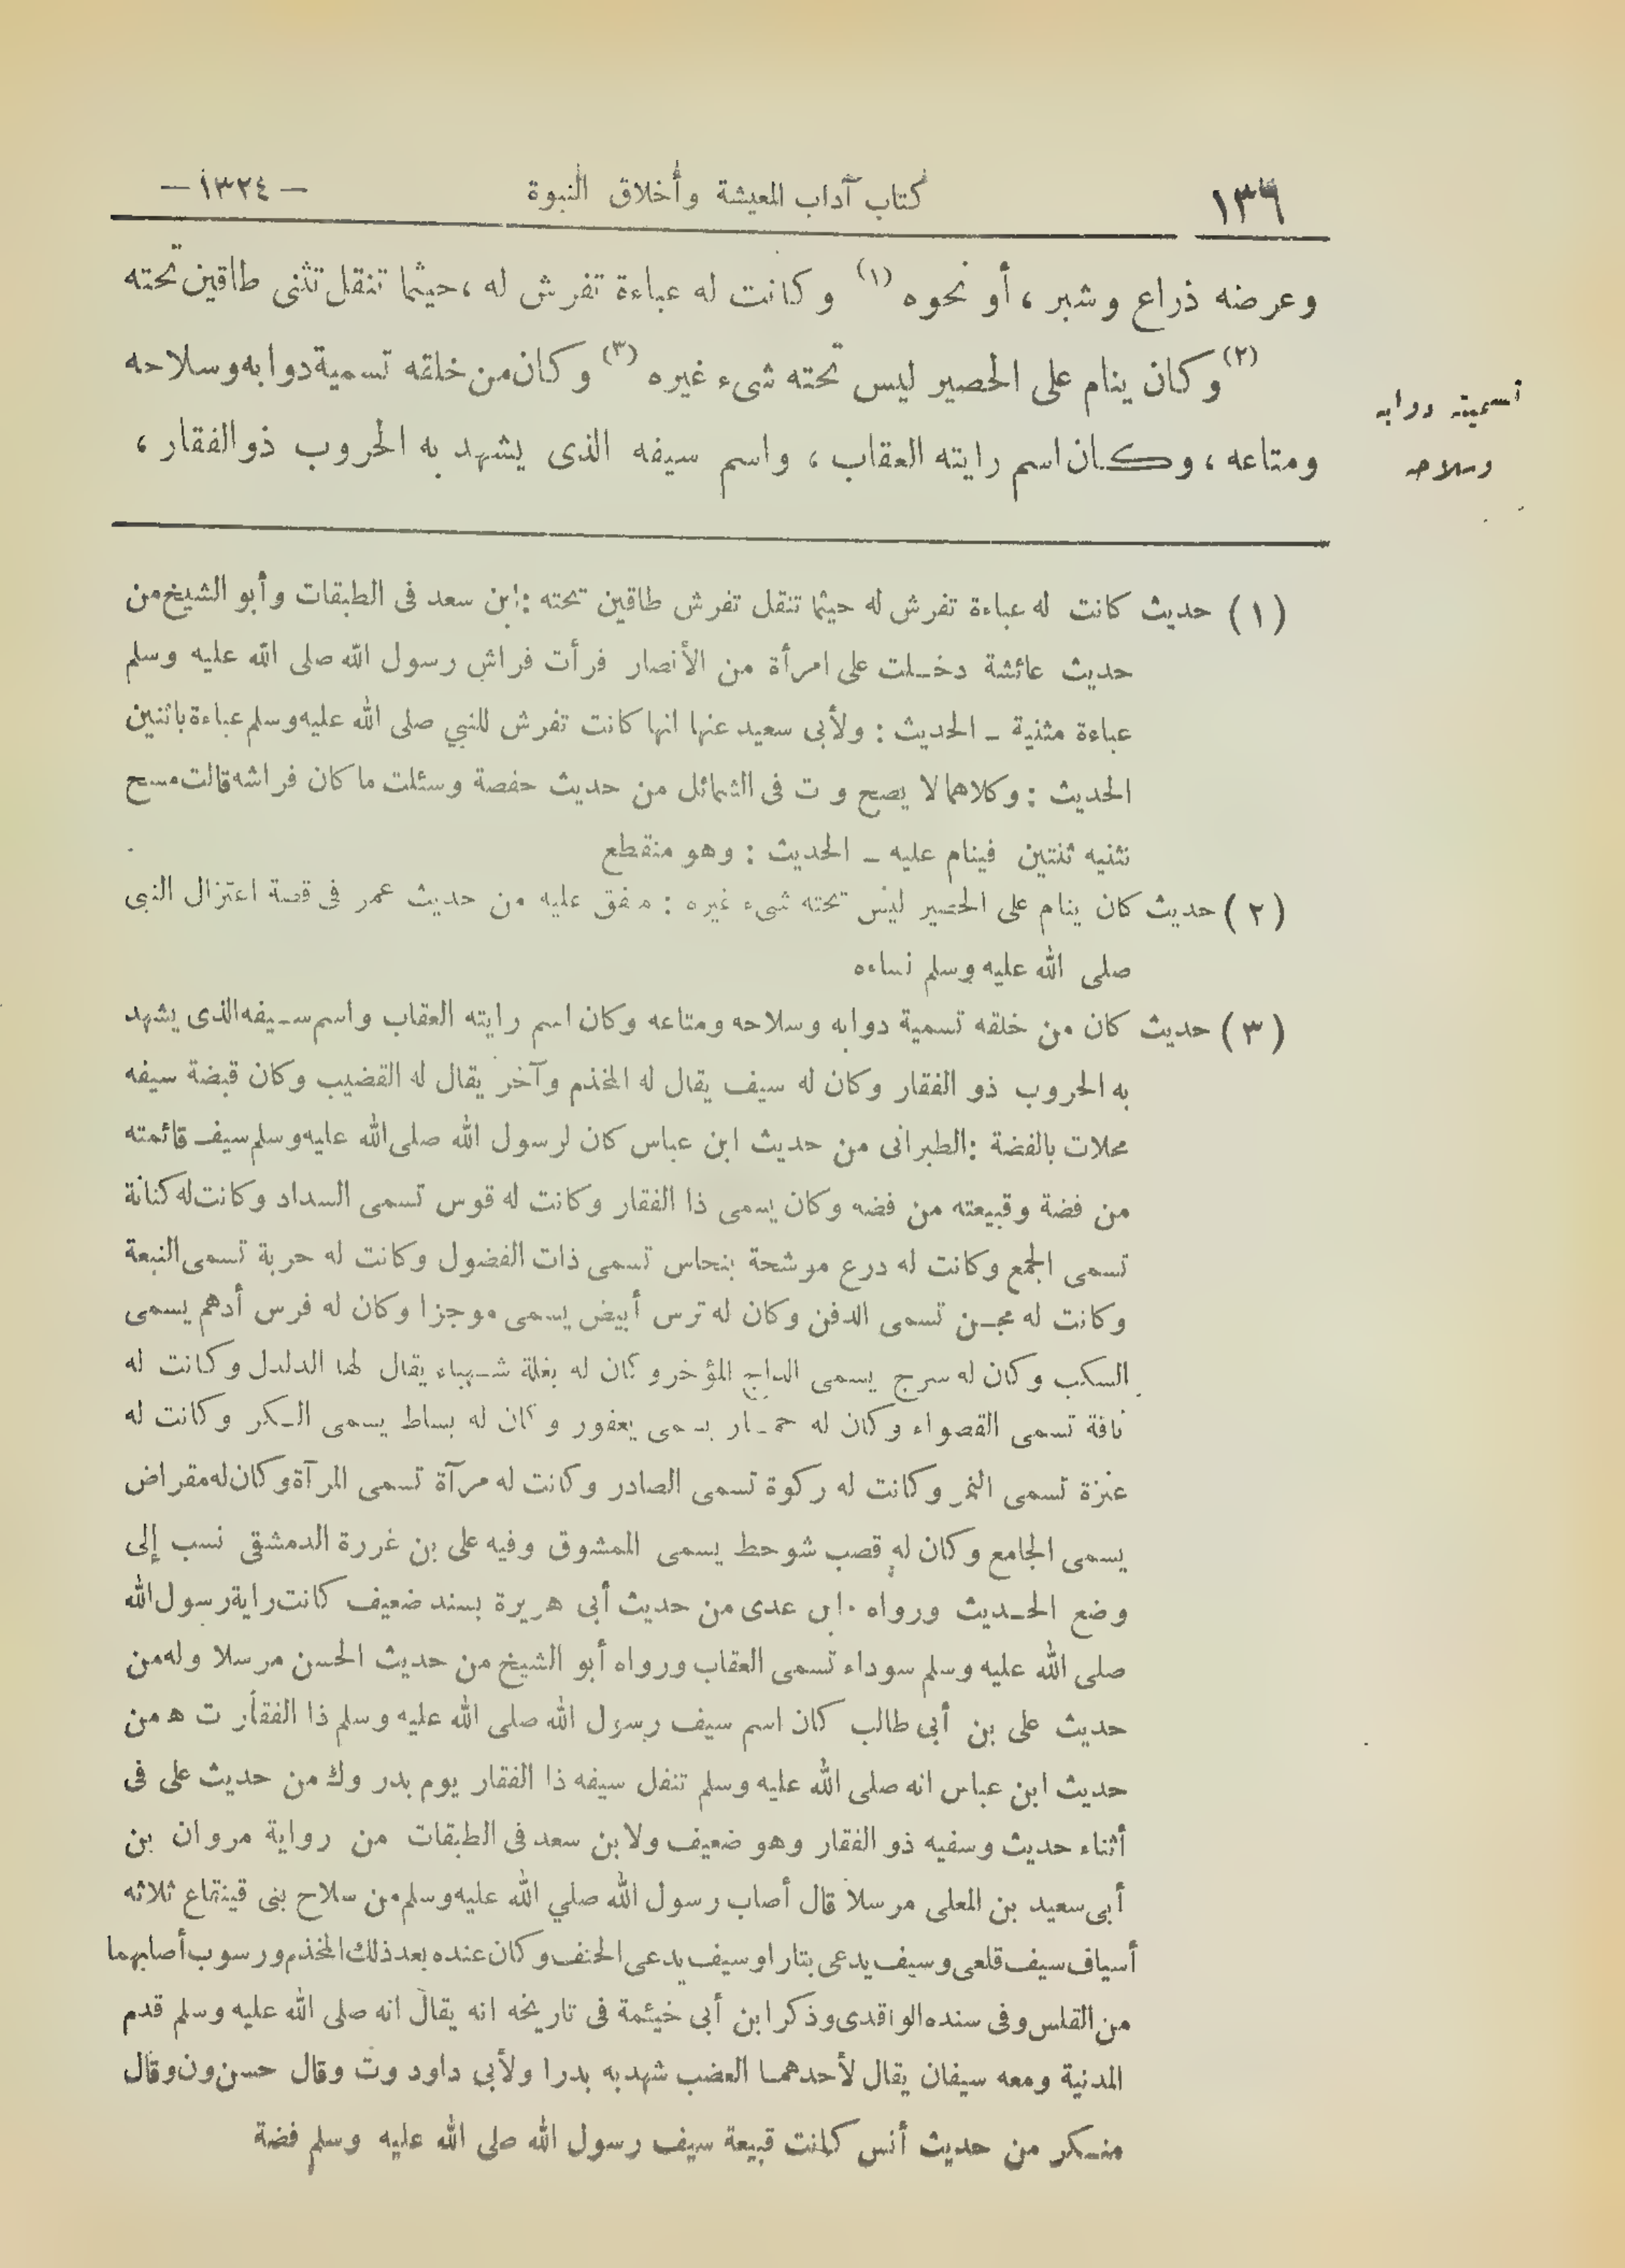 ١٣٦ كتاب آداب المعيشة وأخلاق النبوة — ١٣٢٤ —
وعرضه ذراع وشبر ، أو نحوه (١) وكانت له عباءة تفرش له ، حيثما تنقل تثنى طاقين تحته
(٢) وكان ينام على الحصير ليس تحته شىء غيره (٣) وكان من خلقه تسمية دوابه وسلاحه
ومتاعه ، وكـان اسم رايته العقاب ، واسم سيفه الذى يشهد به الحروب ذو الفقار ،
تسمية دوابه
وسلاحه
(١) حديث كانت له عباءة تفرش له حيثما تنقل تفرش طاقين تحته : ابن سعد فى الطبقات وأبو الشيخ من
حديث عائشة دخـلت على امرأة من الأنصار فرأت فراش رسول الله صلى الله عليه وسلم
عباءة مثنية ـ الحديث : ولأبى سعيد عنها انها كانت تفرش للنبي صلى الله عليه وسلم عباءة باثنين
الحديث : وكلاهما لا يصح و ت فى الشمائل من حديث حفصة وسئلت ما كان فراشه قالت مسح
نثنيه ثنتين فينام عليه ـ الحديث : وهو منقطع
(٢) حديث كان ينام على الحصير ليس تحته شىء غيره : متفق عليه من حديث عمر فى قصة اعتزال النبى
صلى الله عليه وسلم نساءه
(٣) حديث كان من خلقه تسمية دوابه وسلاحه ومتاعه وكان اسم رايته العقاب واسم سـيفه الذى يشهد
به الحروب ذو الفقار وكان له سيف يقال له المخذم وآخر يقال له القضيب وكان قبضة سيفه
محلات بالفضة : الطبرانى من حديث ابن عباس كان لرسول الله صلى الله عليه وسلم سيف قائمته
من فضة وقبيعته من فضه وكان يسمى ذا الفقار وكانت له قوس تسمى السداد وكانت له كنانة
تسمى الجمع وكانت له درع موشحة بنحاس تسمى ذات الفضول وكانت له حربة تسمى النبعة
وكانت له مجـن تسمى الدفن وكان له ترس أبيض يسمى موجزا وكان له فرس أدهم يسمى
السكب وكان له سرج يسمى الداج المؤخر وكان له بغلة شـهباء يقال لها الدلدل وكانت له
ناقة تسمى القصواء وكان له حمـار يسمى يعفور وكان له بساط يسمى الـكر وكانت له
عنزة تسمى النمر وكانت له ركوة تسمى الصادر وكانت له مرآة تسمى المرآة وكان له مقراض
يسمى الجامع وكان له قصب شوحط يسمى الممشوق وفيه على بن غررة الدمشقى نسب إلى
وضع الحـديث ورواه ابن عدى من حديث أبى هريرة بسند ضعيف كانت راية رسول الله
صلى الله عليه وسلم سوداء تسمى العقاب ورواه أبو الشيخ من حديث الحسن مرسلا وله من
حديث على بن أبى طالب كان اسم سيف رسول الله صلى الله عليه وسلم ذا الفقار ت ه من
حديث ابن عباس انه صلى الله عليه وسلم تنفل سيفه ذا الفقار يوم بدر وك من حديث على فى
أثناء حديث وسفيه ذو الفقار وهو ضعيف ولابن سعد فى الطبقات من رواية مروان بن
أبى سعيد بن المعلى مرسلا قال أصاب رسول الله صلي الله عليه وسلم من سلاح بنى قينقاع ثلاثه
أسياف سيف قلعى وسيف يدعى بتارا وسيف يدعى الحنف وكان عنده بعد ذلك المخذم ورسوب أصابهما
من القلس وفى سنده الواقدى وذكر ابن أبى خيثمة فى تاريخه انه يقال انه صلى الله عليه وسلم قدم
المدنية ومعه سيفان يقال لأحدهمـا العضب شهد به بدرا ولأبى داود وت وقال حسن ون وقال
منـكر من حديث أنس كانت قبيعة سيف رسول الله صلى الله عليه وسلم فضة